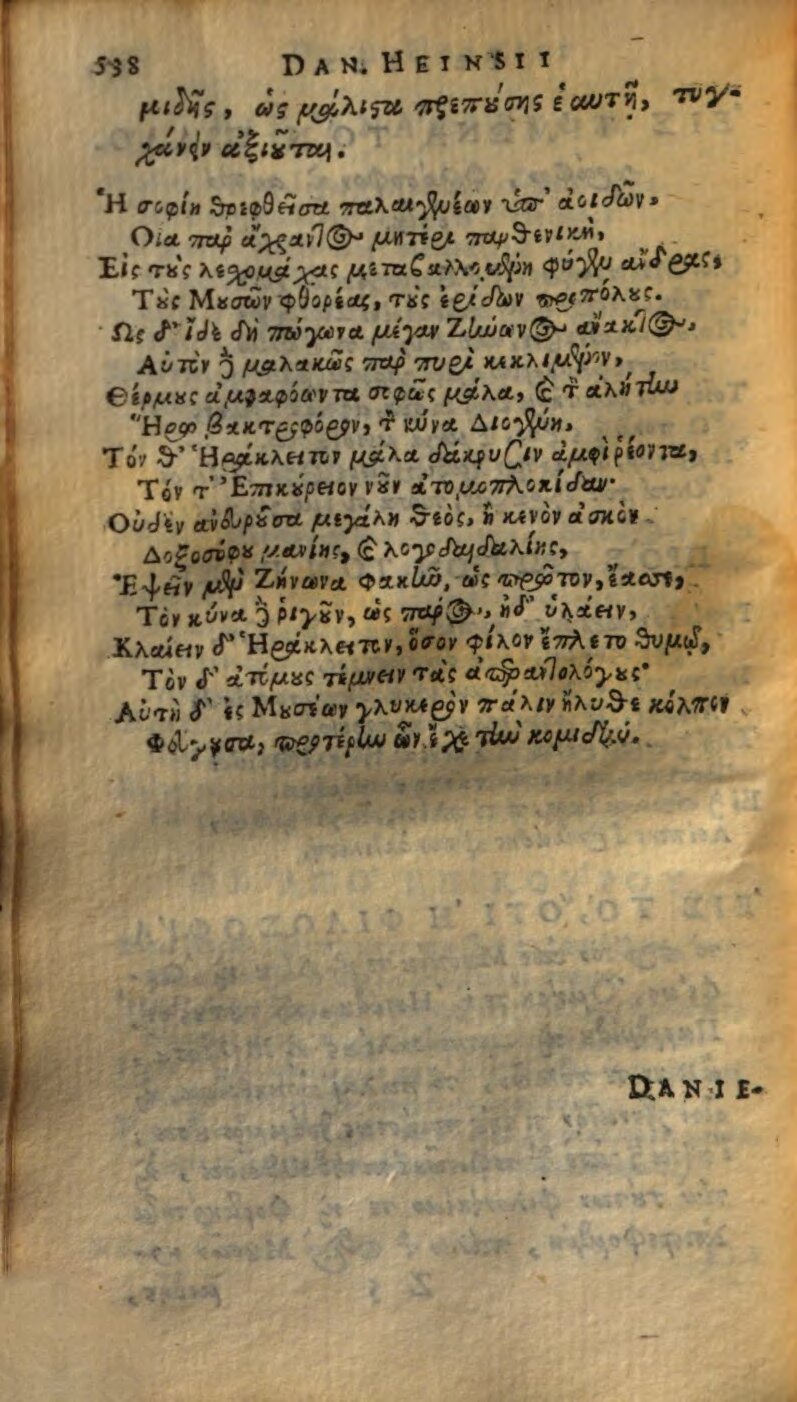 538 DAN. HEINSII
μιδῆς, ὡς μάλιστα πρεπούσης ἑαυτῇ, τυγ-
χάνειν ἀξιοῦται.
Ἡ σοφίη θρεφθεῖσα παλαιγενέων ὑπ' ἀοιδῶν,
Οἷα παρ' ἀχράντῳ μητέρι παρθενική,
Εἰς τοὺς λεχομάχας μεταβαλλομένη φύγεν ἄνδρας,
Τοὺς Μουσῶν φθορέας, τοὺς ἐρίδων προπόλους.
Ὡς δ' ἴδε δὴ πώγωνα μέγαν Ζήνωνος ἄνακτος,
Αὐτὸν δὲ μαλακῶς παρ πυρὶ κεκλιμένον,
Θέρμους ἀμφαφόωντα σοφῶς μάλα, καὶ τὸν ἀλήτην
Ἥρω βακτροφόρον, τὸν κύνα Διογένη,
Τόν θ' Ἡράκλειτον μάλα δάκρυσιν ἀμφιρέοντα,
Τόν τ' Ἐπικούρειον νοῦν ἀτομοπλοκίδαν·
Οὐδὲν ἀνευροῦσα μεγάλη θεὸς, ἢ κενὸν ἀσκὸν
Δοξοσόφου μανίης, καὶ λογοδαιδαλίης,
Ἕψειν μὲν Ζήνωνα φακῶ, ὡς πρῶτον, ἔασε,
Τὸν κύνα δὲ ῥιγοῦν, ὡς πάρος, ἠδ' ὑλάειν,
Κλαίειν δ' Ἡράκλειτον, ὅσον φίλον ἔπλετο θυμῷ,
Τὸν δ' ἀτόμους τέμνειν τὰς ἀπεραντολόγους·
Αὐτὴ δ' ἐς Μουσέων γλυκερὸν πάλιν ἤλυθε κόλπον
Φεύγουσα, προτέρην ὧν ἔχε τὴν κομιδήν.
DANIE-